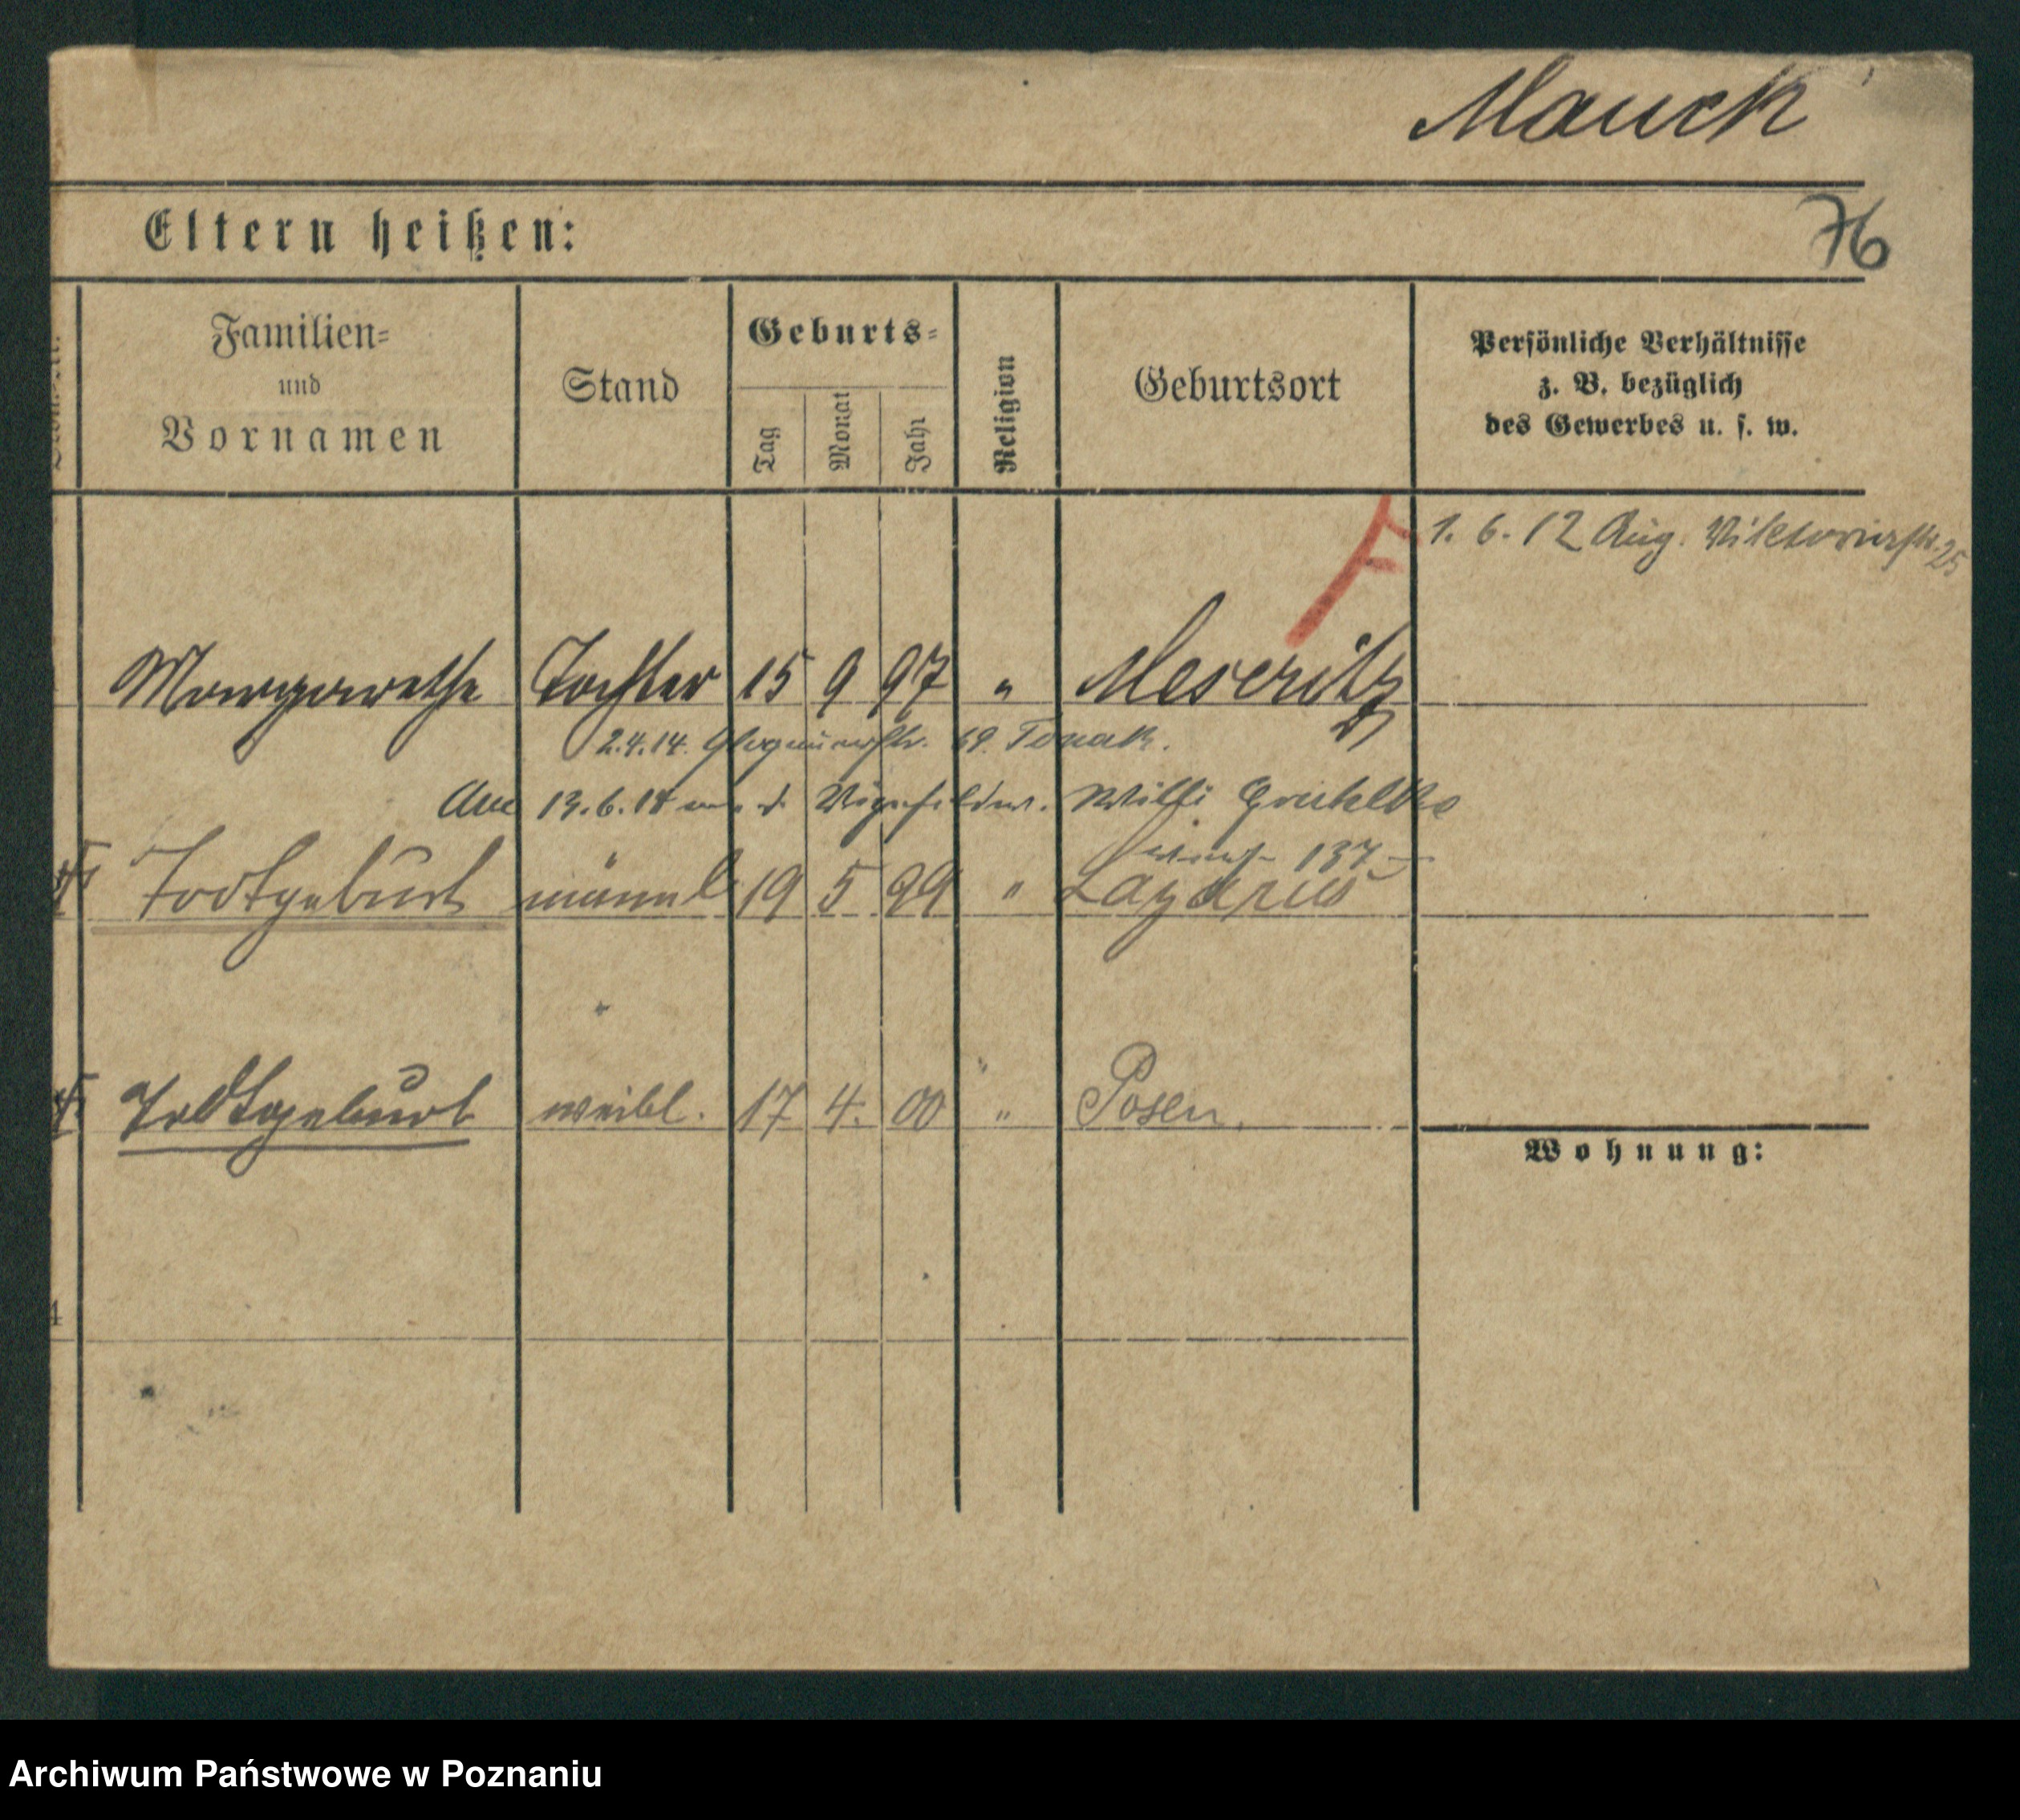 Mauck
76
Eltern heißen:
Familien-
und
Vornamen
Stand
Geburts-
Tag
Monat
Jahr
Religion
Geburtsort
Persönliche Verhältnisse
z. B. bezüglich
des Gewerbes u. s. w.
1. 6. 12 Aug. Viktoriastr. 25
Margarethe Tochter 15 9 97 " Meseritz
2.4.14. Glogauerstr. 69.
13.6.18 d. Vizefeldw. Willi
137
Todtgeburt männl 19 5 99 " Lazarus
Todtgeburt weibl. 17 4. 00 " Posen.
Wohnung:
4
Archiwum Państwowe w Poznaniu